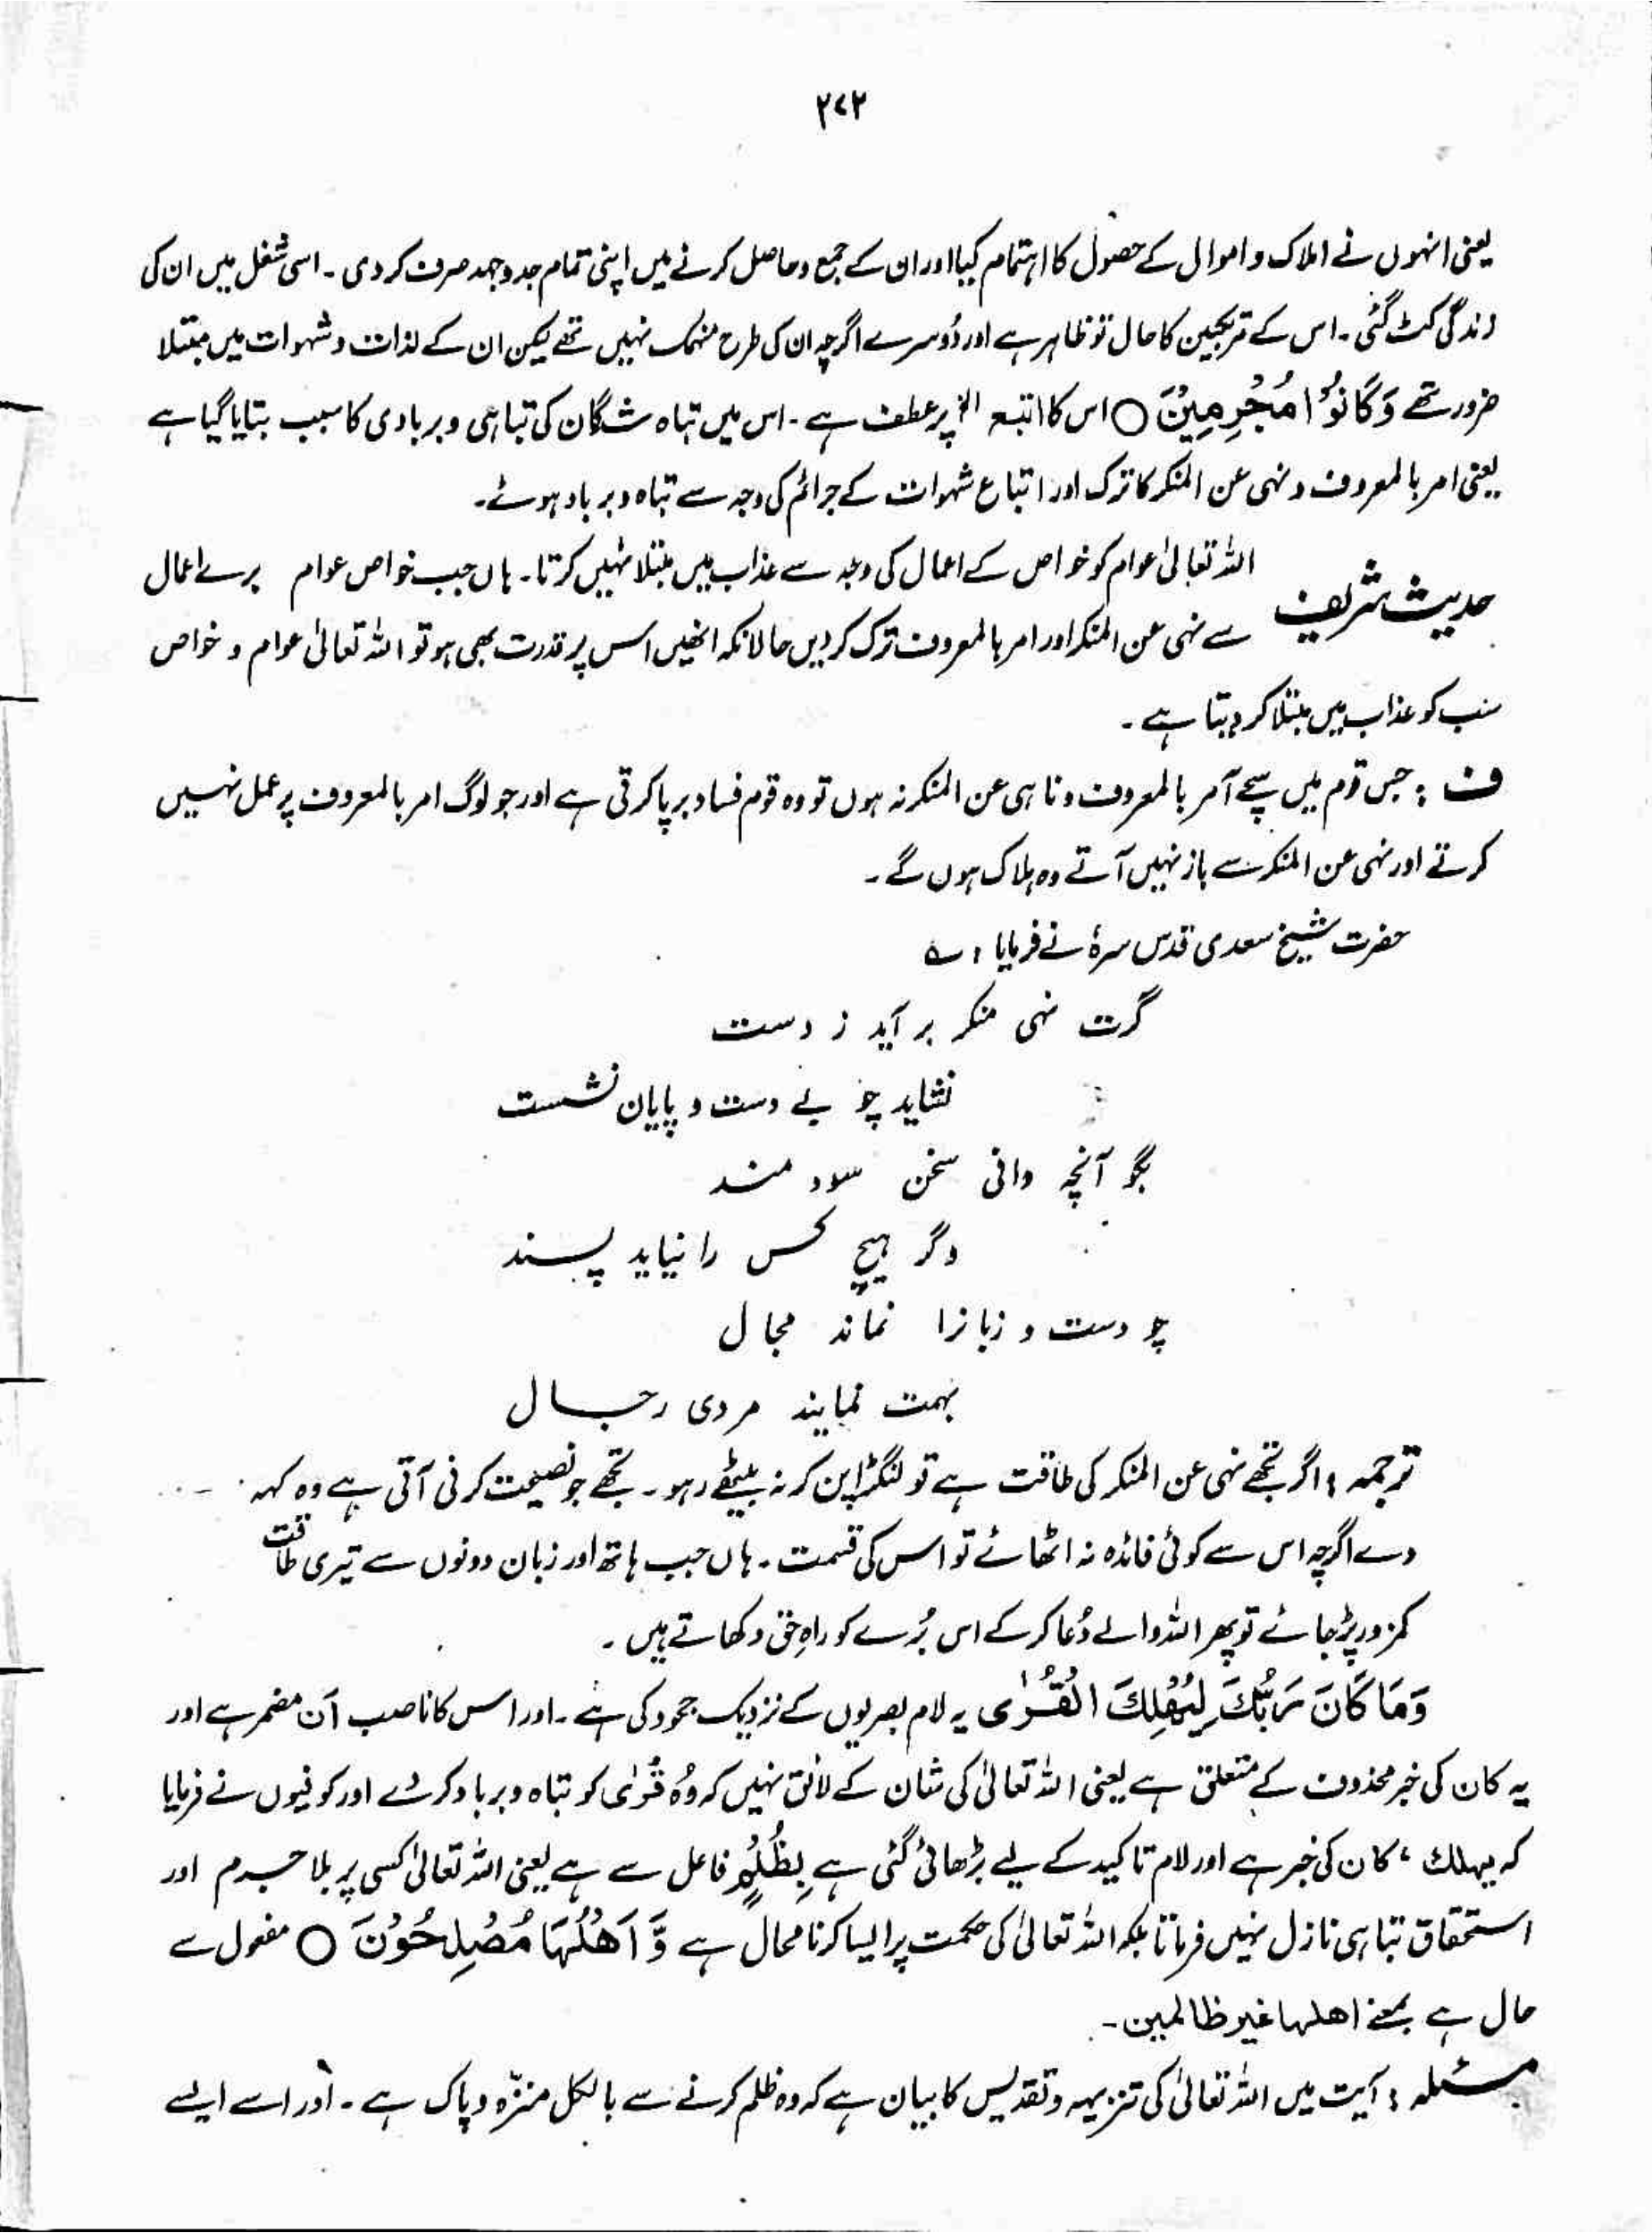 ۲۷۲
یعنی انہوں نے املاک و اموال کے حصول کا اہتمام کیا اور ان کے جمع و حاصل کرنے میں اپنی تمام جد و جہد صرف کر دی ۔ اسی شغل میں ان کی
زندگی کٹ گئی ۔ اس کے مرتکبین کا حال تو ظاہر ہے اور دُوسرے اگرچہ ان کی طرح منہمک نہیں تھے لیکن ان کے لذات و شہوات میں مبتلا
ضرور تھے وَكَانُوْا مُجْرِمِيْنَ ○ اس کا اتبع الخ پر عطف ہے ۔ اس میں تباہ شدگان کی تباہی و بربادی کا سبب بتایا گیا ہے
یعنی امر بالمعروف و نہی عن المنکر کا ترک اور اتباع شہوات کے جرائم کی وجہ سے تباہ و برباد ہوئے ۔
حدیث شریف اللہ تعالیٰ عوام کو خواص کے اعمال کی وجہ سے عذاب میں مبتلا نہیں کرتا ۔ ہاں جب خواص عوام برے اعمال
سے نہی عن المنکر اور امر بالمعروف ترک کر دیں حالانکہ انھیں اس پر قدرت بھی ہو تو اللہ تعالیٰ عوام و خواص
سب کو عذاب میں مبتلا کر دیتا ہے ۔
ف : جس قوم میں سچے آمر بالمعروف و ناہی عن المنکر نہ ہوں تو وہ قوم فساد برپا کرتی ہے اور جو لوگ امر بالمعروف پر عمل نہیں
کرتے اور نہی عن المنکر سے باز نہیں آتے وہ ہلاک ہوں گے ۔
حضرت شیخ سعدی قدس سرہٗ نے فرمایا : ؎
گرت نہی منکر بر آید ز دست
نشاید چو بے دست و پایان نشست
بگو آنچہ دانی سخن سود مند
وگر ہیچ کس را نیاید پسند
چو دست و زبانرا نماند مجال
بہمت نمایند مردی رجال
ترجمہ : اگر تجھے نہی عن المنکر کی طاقت ہے تو لنگڑا بن کر نہ بیٹھے رہو ۔ تجھے جو نصیحت کرنی آتی ہے وہ کہہ
دے اگرچہ اس سے کوئی فائدہ نہ اٹھائے تو اس کی قسمت ۔ ہاں جب ہاتھ اور زبان دونوں سے تیری طاقت
کمزور پڑ جائے تو پھر اللہ والے دُعا کر کے اس بُرے کو راہِ حق دکھاتے ہیں ۔
وَمَا كَانَ رَبُّكَ لِيُهْلِكَ الْقُرٰى یہ لام بصریوں کے نزدیک جحود کی ہے ۔ اور اس کا ناصب اَن مضمر ہے اور
یہ کان کی خبر محذوف کے متعلق ہے یعنی اللہ تعالیٰ کی شان کے لائق نہیں کہ وُہ قُریٰ کو تباہ و برباد کر دے اور کوفیوں نے فرمایا
کہ یہلك ، کان کی خبر ہے اور لام تاکید کے لیے بڑھائی گئی ہے بِظُلْمٍ فاعل سے ہے یعنی اللہ تعالیٰ کسی پر بلا جرم اور
استحقاق تباہی نازل نہیں فرماتا بلکہ اللہ تعالیٰ کی حکمت پر ایسا کرنا محال ہے وَّ اَهْلُهَا مُصْلِحُوْنَ ○ مفعول سے
حال ہے بمعنے اهلها غیر ظالمین ۔
مسئلہ : آیت میں اللہ تعالیٰ کی تنزیہہ و تقدیس کا بیان ہے کہ وہ ظلم کرنے سے بالکل منزّہ و پاک ہے ۔ اور اسے ایسے